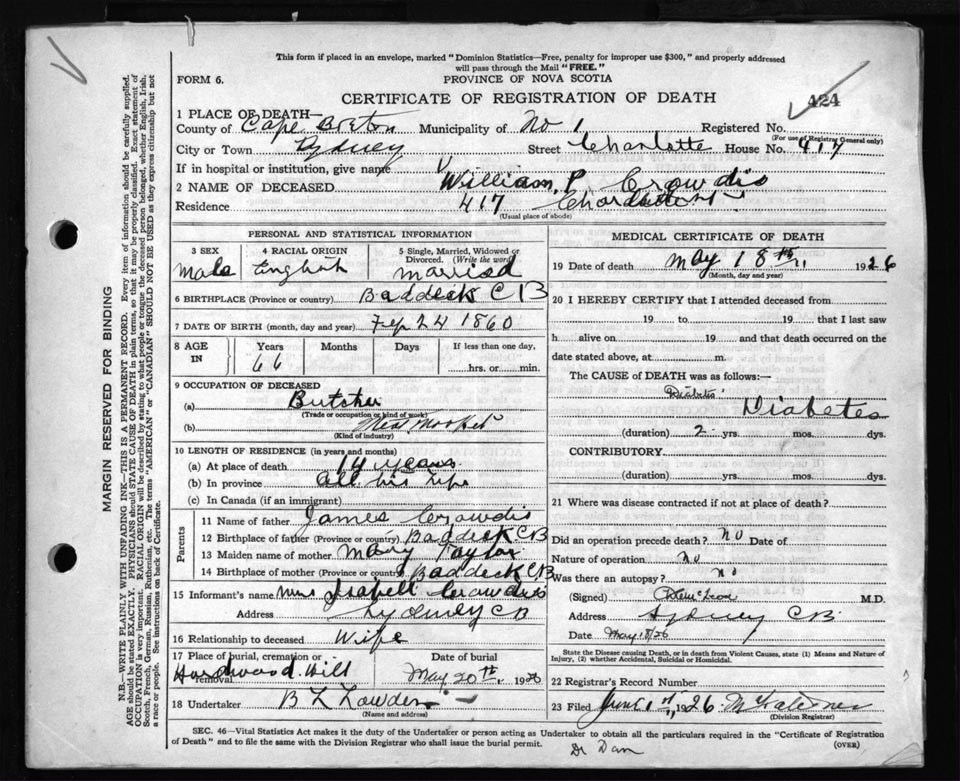 This form if placed in an envelope, marked "Dominion Statistics—Free, penalty for improper use $300," and properly addressed
will pass through the Mail "FREE."
FORM 6.
PROVINCE OF NOVA SCOTIA
CERTIFICATE OF REGISTRATION OF DEATH
424
1 PLACE OF DEATH—
County of Cape Breton Municipality of No 1 Registered No.
(For use of Registry General only)
City or Town Sydney Street Charlotte House No. 417
If in hospital or institution, give name
2 NAME OF DECEASED William P. Crowdis
Residence 417
(Usual place of abode)
PERSONAL AND STATISTICAL INFORMATION
3 SEX
Male
4 RACIAL ORIGIN
English
5 Single, Married, Widowed or Divorced. (Write the word)
married
6 BIRTHPLACE (Province or country) Baddeck CB
7 DATE OF BIRTH (month, day and year) Feb 24 1860
8 AGE IN
Years Months Days If less than one day,
66
hrs. or min.
9 OCCUPATION OF DECEASED
(a) Butcher
(Trade or occupation or kind of work)
(b) Meat Market
(Kind of industry)
10 LENGTH OF RESIDENCE (in years and months)
(a) At place of death 14 years
(b) In province all his life
(c) In Canada (if an immigrant)
Parents
11 Name of father James Crowdis
12 Birthplace of father (Province or country) Baddeck CB
13 Maiden name of mother Mary Taylor
14 Birthplace of mother (Province or country) Baddeck CB
15 Informant's name Mrs Isabell Crowdis
Address Sydney CB
16 Relationship to deceased Wife
17 Place of burial, cremation or removal
Hardwood Hill
Date of burial
May 20th, 1926
18 Undertaker
(Name and address)
MEDICAL CERTIFICATE OF DEATH
19 Date of death May 18th 1926
(Month, day and year)
20 I HEREBY CERTIFY that I attended deceased from
19 to 19 that I last saw
h alive on 19 and that death occurred on the
date stated above, at m.
The CAUSE of DEATH was as follows:—
Diabetes
Diabetes
(duration) 2 yrs. mos. dys.
CONTRIBUTORY.
(duration) yrs. mos. dys.
21 Where was disease contracted if not at place of death?
Did an operation precede death? no Date of
Nature of operation no
Was there an autopsy? no
(Signed) M.D.
Address Sydney CB
Date May 18/26
State the Disease causing Death, or in death from Violent Causes, state (1) Means and Nature of
Injury, (2) whether Accidental, Suicidal or Homicidal.
22 Registrar's Record Number
23 Filed June 1926
(Division Registrar)
SEC. 46—Vital Statistics Act makes it the duty of the Undertaker or person acting as Undertaker to obtain all the particulars required in the "Certificate of Registration
of Death" and to file the same with the Division Registrar who shall issue the burial permit.
(OVER)
MARGIN RESERVED FOR BINDING
N.B.—WRITE PLAINLY WITH UNFADING INK—THIS IS A PERMANENT RECORD. Every item of information should be carefully supplied.
AGE should be stated EXACTLY. PHYSICIANS should STATE CAUSE OF DEATH in plain terms, so that it may be properly classified. Exact statement of
OCCUPATION is very important. RACIAL ORIGIN will be described by stating to what people or tongue the deceased person belonged, whether English, Irish,
Scotch, French, German, Russian, Ruthenian, etc. The terms "AMERICAN" or "CANADIAN" SHOULD NOT BE USED as they express citizenship but not
a race or people. See instructions on back of Certificate.